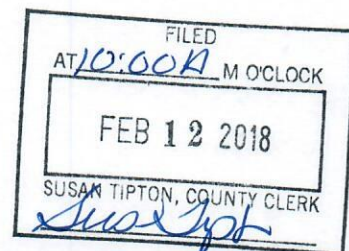 FILED
AT 10:00A M O'CLOCK
FEB 12 2018
SUSAN TIPTON, COUNTY CLERK